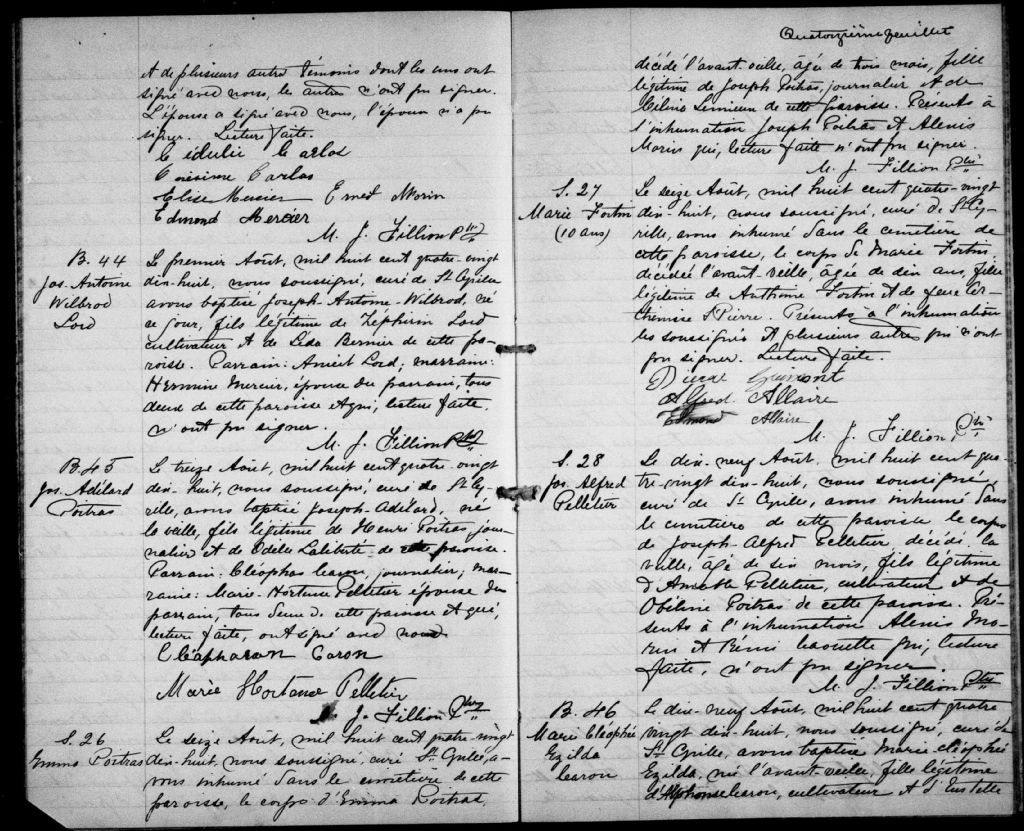 et de plusieurs autre témoins dont les uns ont
signé avec nous, les autres n'ont pu signer.
L'épouse a signé avec nous, l'époux n'a pu
signer. Lecture faite.
Elise Mercier Ernest Morin
Edmond Mercier
M. J. Fillion Ptre
B. 44
Jos. Antoine
Wilbrod
Lord
Le premier Août, mil huit cent quatre-vingt
dix-huit, nous soussigné, curé de St Cyrille
avons baptisé Joseph-Antoine-Wilbrod, né
ce jour, fils légitime de Zéphirin Lord
cultivateur et de Léda Bernier de cette pa-
roisse. Parrain: Lord; marraine:
Hermine Mercier, épouse du parrain, tous
deux de cette paroisse et qui, lecture faite,
n'ont pu signer.
M. J. Fillion Ptre
B. 45
Jos. Adélard
Poitras
Le treize Août, mil huit cent quatre-vingt
dix-huit, nous soussigné, curé de St Cy-
rille, avons baptisé Joseph-Adélard, né
la veille, fils légitime de Henri Poitras, jour-
nalier et de Odile Laliberté de cette paroisse.
Parrain: Cléophas Caron, journalier; mar-
raine: Marie-Hortense Pelletier épouse du
parrain, tous deux de cette paroisse et qui,
lecture faite, ont signé avec nous.
Caron
Marie Hortense Pelletier
J. Fillion Ptre
S. 26
Emma Poitras
Le seize Août, mil huit cent quatre-vingt
dix-huit, nous soussigné, curé St Cyrille, a-
vons inhumé dans le cimetière de cette
paroisse, le corps d'Emma Poitras,
Quatorzième feuillet
décédé l'avant veille, âgée de trois mois, fille
légitime de Joseph Poitras, journalier et de
Célina Lemieux de cette paroisse. Présents à
l'inhumation Joseph Poitras et Alexis
Morin qui, lecture faite n'ont pu signer.
M. J. Fillion Ptre
S. 27
Marie Fortin
(10 ans)
Le seize Août, mil huit cent quatre-vingt
dix-huit, nous soussigné, curé de St Cy-
rille, avons inhumé dans le cimetière de
cette paroisse, le corps de Marie Fortin
décédé l'avant-veille, âgée de dix ans, fille
légitime de Anthime Fortin et de feue Ar-
thémise St Pierre. Présents à l'inhumation
les soussignés et plusieurs autres qui n'ont
pu signer. Lecture faite.
Alfred Allaire
Edmond Allaire
M. J. Fillion, Ptre
S. 28
Jos. Alfred
Pelletier
Le dix-neuf Août, mil huit cent qua-
tre-vingt dix-huit, nous soussigné,
curé de St Cyrille, avons inhumé dans
le cimetière de cette paroisse le corps
de Joseph-Alfred Pelletier décédé la
veille, âgé de dix mois, fils légitime
d'Anselme Pelletier, cultivateur et de
Obéline Poitras de cette paroisse. Pré-
sents à l'inhumation Alexis Mo-
rin et Rémi qui, lecture
faite, n'ont pu signer.
M. J. Fillion Ptre
B. 46
Marie Cléophée
Ezilda
Caron
Le dix-neuf Août, mil huit cent quatre
vingt dix-huit, nous soussigné, curé de
St Cyrille, avons baptisé Marie-Cléophée
Ezilda, née l'avant-veille, fille légitime
d'Alphonse Caron, cultivateur et d'Eustelle